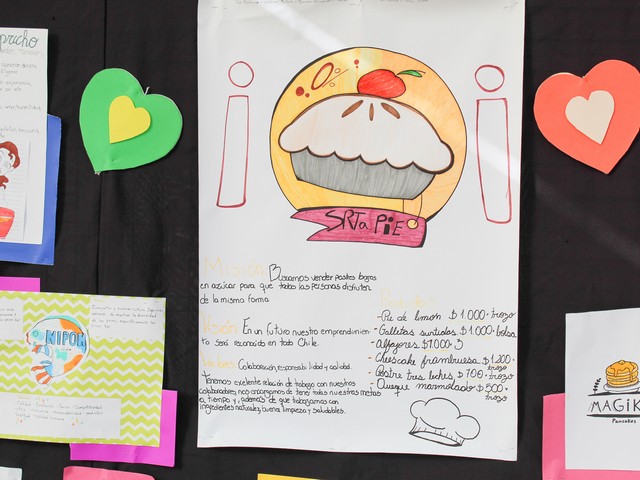 pricho
0%
SRTa PiE
Misión Buscamos vender postres bajos
en azúcar para que todas las personas disfruten
de la misma forma
Visión En un futuro nuestro emprendimien
to será reconocido en todo Chile.
Valores Colaboración, responsabilidad y calidad.
Tenemos excelente relación de trabajo con nuestros
colaboradores, nos encargamos de tener todas nuestras metas
a tiempo y, además de que trabajamos con
ingredientes naturales, buena limpieza y saludables.
Productos
-Pie de limón $1.000 · trozo
-Galletas surtidas $1.000 · bolsa
-Alfajores $1.000 3
-Cheescake frambuesa $1.200 · trozo
-Postre tres leches $700 · trozo
-Queque marmolado $500 · trozo
NIPON
MAGIK
Pancakes